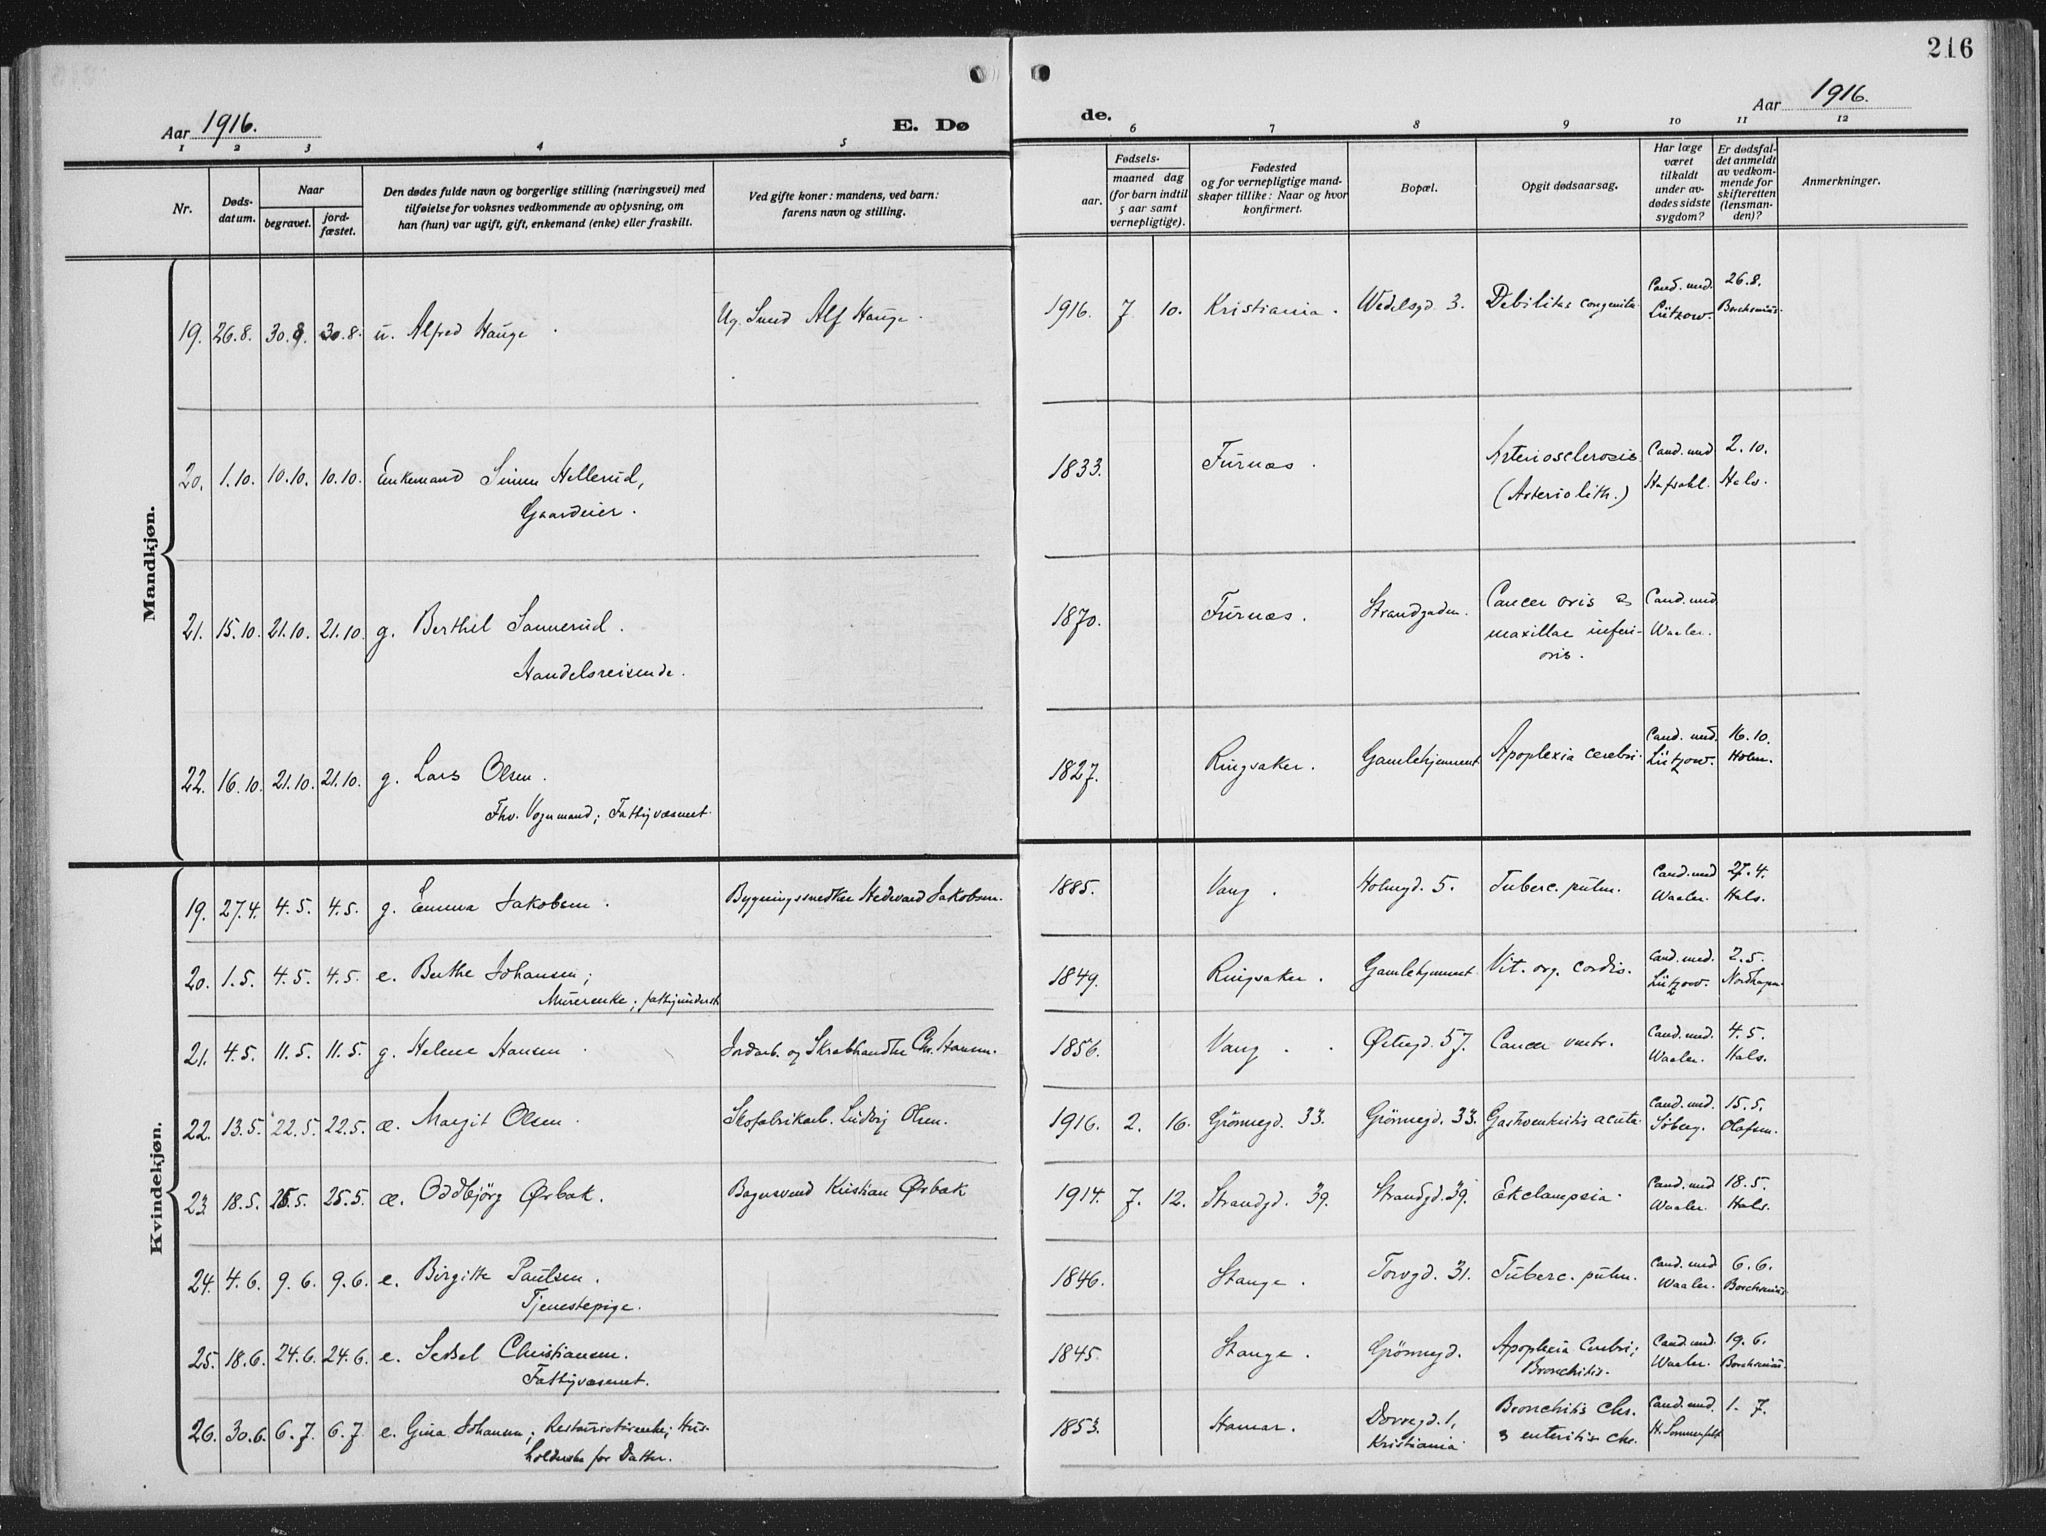 216
Aar 1916.
E. Dø
de.
Aar 1916.
1 2 3 4 5 6 7 8 9 10 11 12
Nr.
Døds-
datum.
Naar
begravet.
jord-
fæstet.
Den dødes fulde navn og borgerlige stilling (næringsvei) med
tilføielse for voksnes vedkommende av oplysning, om
han (hun) var ugift, gift, enkemand (enke) eller fraskilt.
Ved gifte koner: mandens, ved barn:
farens navn og stilling.
Fødsels-
aar.
maaned dag
(for barn indtil
5 aar samt
vernepligtige).
Fødested
og for vernepligtige mand-
skaper tillike: Naar og hvor
konfirmert.
Bopæl.
Opgit dødsaarsag.
Har læge
været
tilkaldt
under av-
dødes sidste
sygdom?
Er dødsfal-
det anmeldt
av vedkom-
mende for
skifteretten
(lensman-
den)?
Anmerkninger.
Mandkjøn.
19. 26.8. 30.8. 30.8. u. Alfred Hauge Ug. Svend Alf Hauge. 1916. 7 10. Kristiania. Wedelsgd 3. Debilitas congenita Cand. med. Lützow. 26.8. Borchsenius.
20. 1.10. 10.10. 10.10. Enkemand Simen Hellerud, 1833. Furnæs. Arteriosclerosis Cand. med 2.10.
Gaardeier. (Arteriolith.) Hafsahl. Hals.
21. 15.10. 21.10. 21.10. g. Berthel Sannerud. 1870. Furnæs. Strandgaden. Cancer oris & Cand. med.
Handelsreisende. maxillae inferi- Waaler.
oris.
22. 16.10. 21.10. 21.10. g. Lars Olsen. 1827. Ringsaker. Gamlehjemmet Apoplexia cerebri. Cand. med. Lützow. 16.10. Holm.
Fhv. Vognmand; Fattigvæsenet.
Kvindekjøn.
19. 27.4. 4.5. 4.5. g. Emma Jakobsen. Bygningssnedker Hedevard Jakobsen. 1885. Vang. Holmgd. 5. Tuberc. pulm. Cand. med Waaler. 27.4. Hals.
20. 1.5. 4.5. 4.5. e. Berthe Johansen; 1849. Ringsaker. Gamlehjemmet Vit. org. cordis. Cand. med. Lützow. 2.5.
Murerenke; fattigunderst.
21. 4.5. 11.5. 11.5. g. Helene Hansen Jordarb. og Skrabhandler Chr. Hansen. 1856. Vang. Østregd. 57. Cancer ventr. Cand. med. Waaler. 4.5. Hals.
22. 13.5. 22.5. 22.5. æ. Margit Olsen. Skofabrikarb. Ludvig Olsen. 1916. 2. 16. Grönnegd. 33. Grönnegd. 33. Gastroenteritis acuta Cand. med. Söberg. 15.5. Olafsen.
23. 18.5. 25.5. 25.5. æ. Oddbjörg Ørbæk. Bagersvend Kristian Ørbæk 1914. 7. 12. Strandgd. 39. Strandgd. 39. Eklampsia. Cand. med Waaler. 18.5. Hals.
24. 4.6. 9.6. 9.6. e. Birgitte Paulsen. 1846. Stange. Torvgd. 31. Tuberc. pulm. Cand. med Waaler. 6.6. Borchsenius.
Tjenestepige.
25. 18.6. 24.6. 24.6. e. Sedsel Christiansen. 1845. Stange. Grönnegd. Apoplexia Cerebri; Cand. med. Waaler. 19.6. Borchsenius.
Fattigvæsenet. Bronchitis.
26. 30.6. 6.7. 6.7. e. Gina Johansen; Hus- 1853. Hamar. Dovregd. 1, Bronchitis chr. Cand. med. 1.7.
holderske for Datter. Kristiania & enteritis chr. H. Sommerfelt